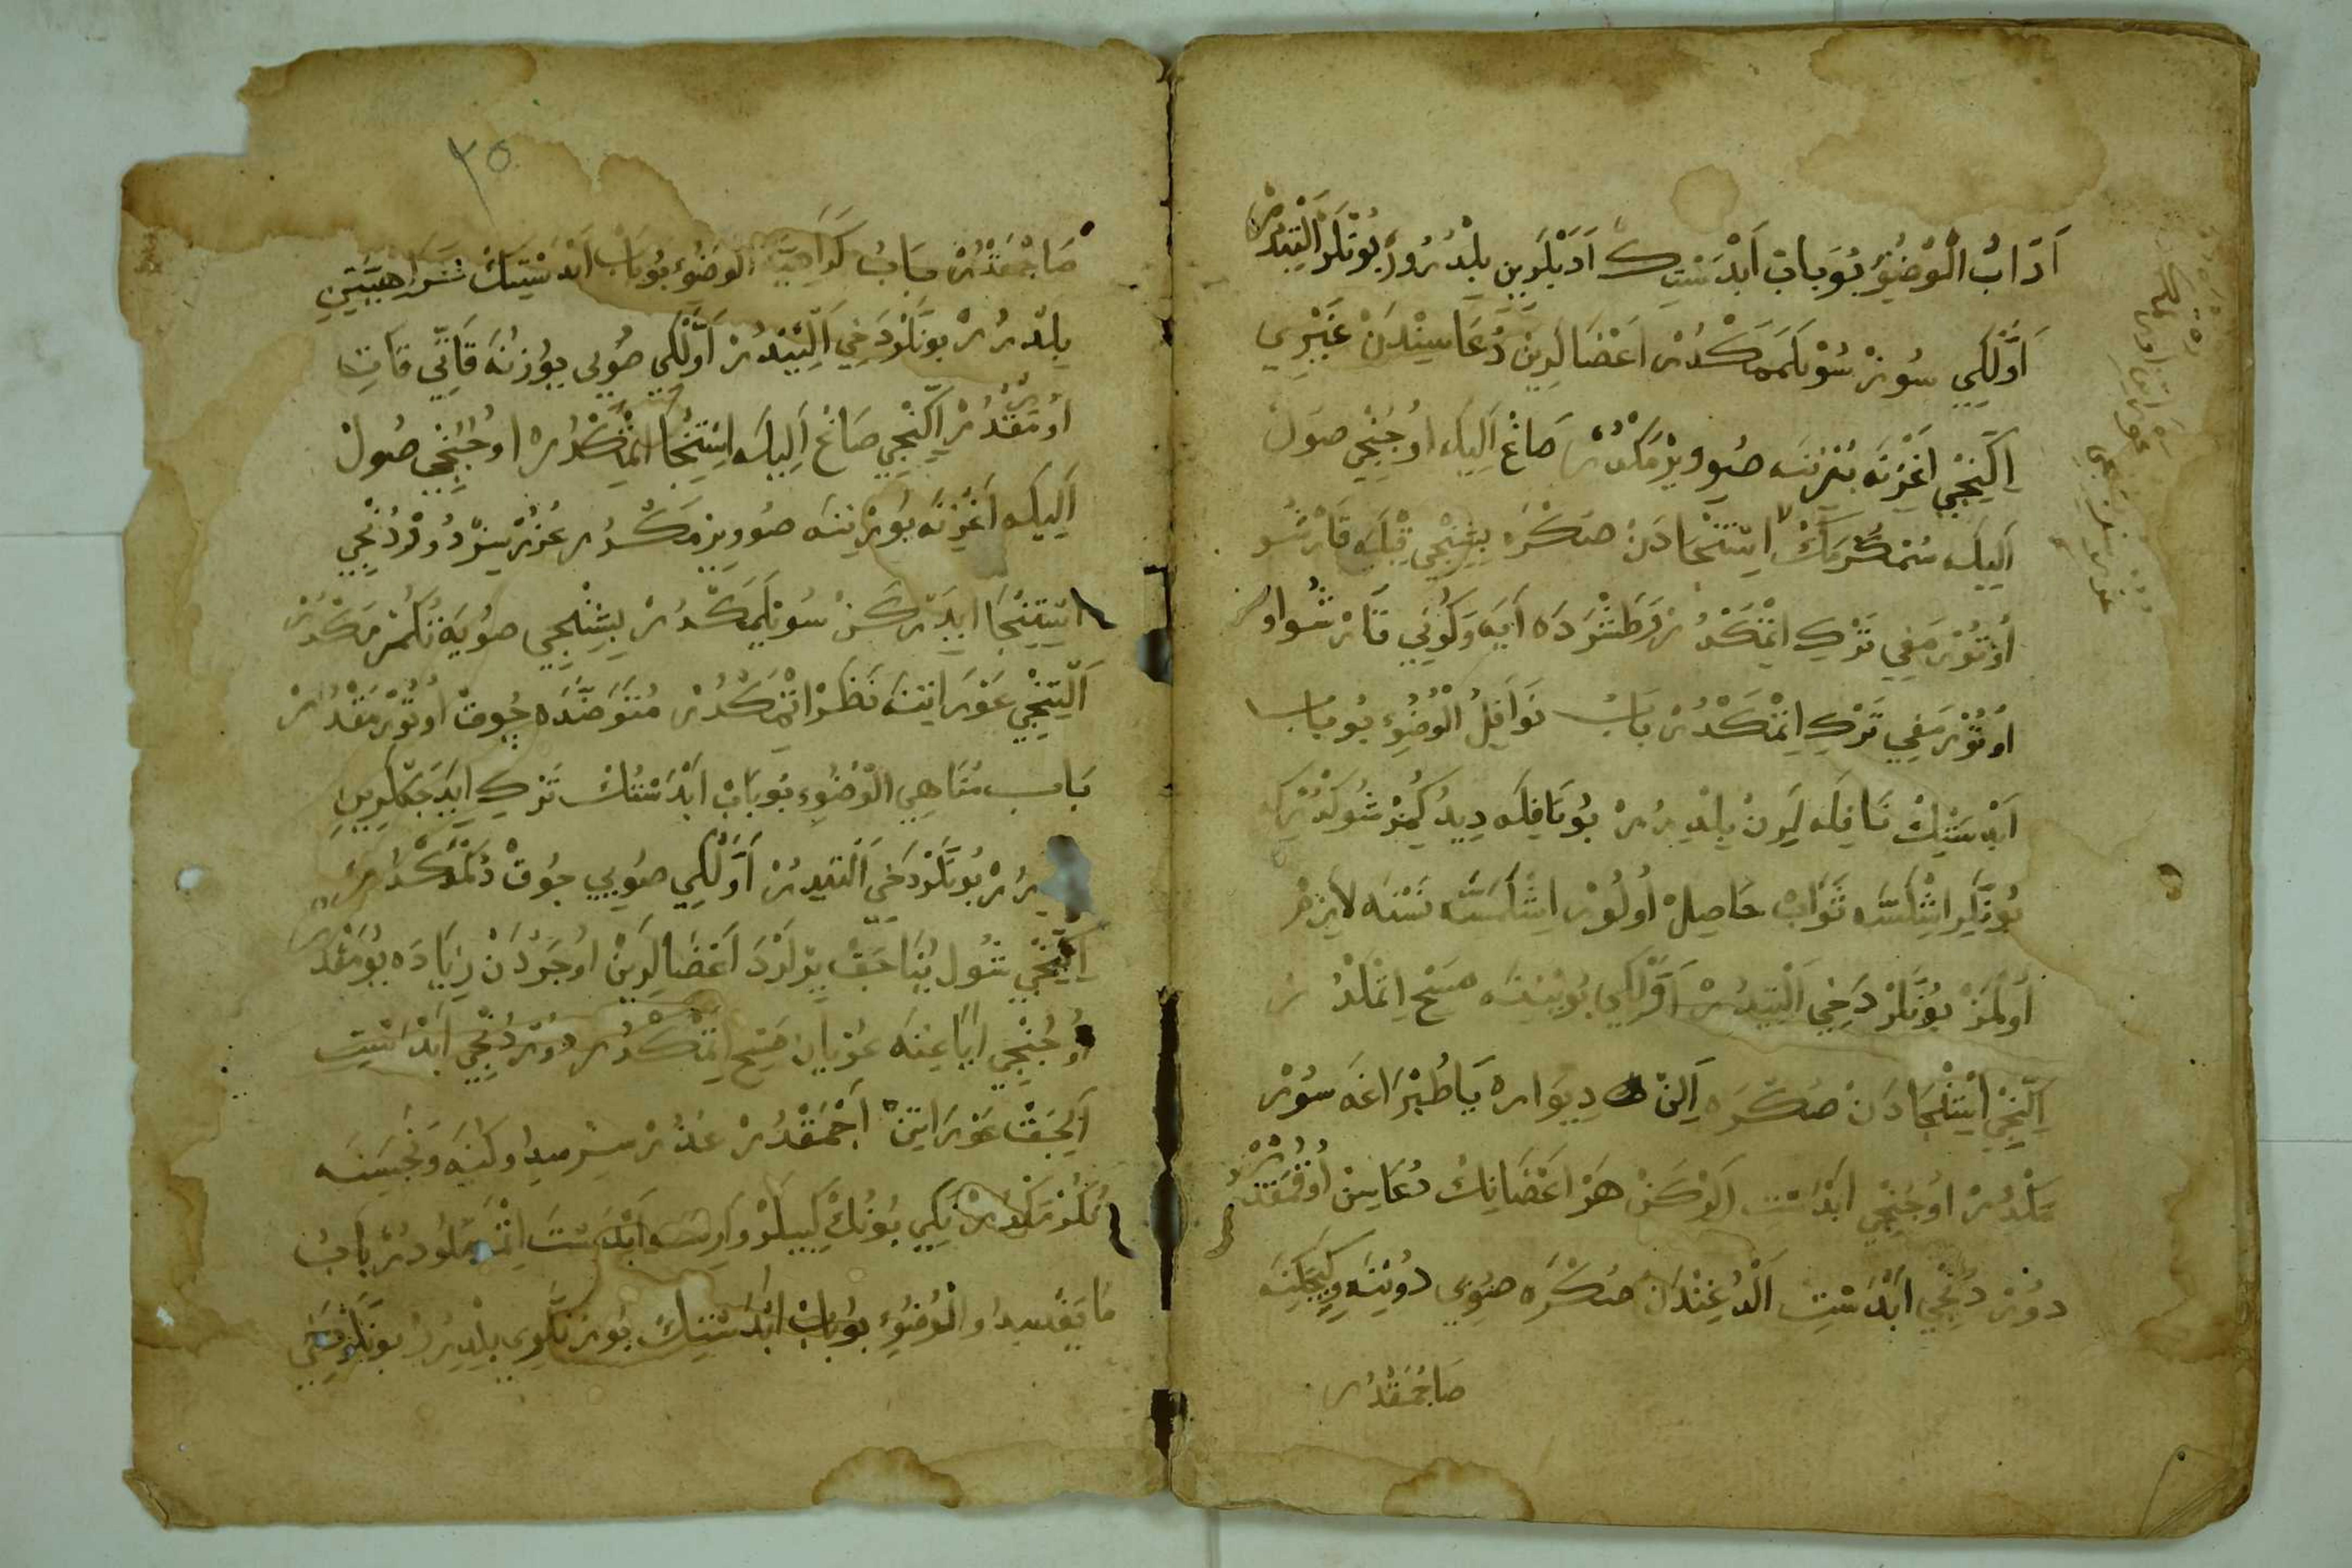 اَدَابُ الْوُضُوُءِ بُوبَابْ اَبْدَسْتِكْ اَدَبْلَرِينِ بِلْدُرُرْ بُونْلَرْ اَلْتِيدُرْ
اَوَّلْكِي سُوزْ سُوْيلَمَمَكْدُرْ اَعْضَالَرِينْ دُعَاسِينْدَنْ غَيْرِي
اِكِنْجِي اَغْزِنَه بُرْنِنَه صُو وِيرْمَكْدُرْ صَاغْ اَلِيلَه اوُجُنْجِي صَولْ
اَلِيلَه سُمْكُرْمَكْ اِسْتِنْجَادَنْ صَكْرَه بِشِنْجِي قِبْلَيَه قَارْشُو
اُوتُورْمَغِي تَرْكِ اِتْمَكْدُرْ طَشْرَدَه اَيَه وَكُونَه قَارْشُو
اُوتُورْمَغِي تَرْكِ اِتْمَكْدُرْ بَابُ نَوَافِلُ الْوُضُوءِ بُوبَابْ
اَبْدَسْتِكْ نَافِلَه لَرِينْ بِلْدِرُرْ بُونَافِلَه دِيدُكِمُزْ شُولْدُرْكِه
بُونْلَرِ اِشْلَسَه ثَوَابْ حَاصِلْ اُولُورْ اِشْلَمَسَه نَسْنَه لاَزِمْ
اَولْمَزْ بُونْلَرْ دَخِي اَلْتِيدُرْ اَوَّلْكِي بُوينِنَه مَسْحِ اِتْمَكْدُرْ
اِكِنْجِي اِسْتِنْجَادَنْ صُكْرَه اَلِنْ دِيوَارَه يَا طُبْرَاغَه سُورْ
مَكْدُرْ اوُجُنْجِي اَبْدَسْتِ اَلُورْكَنْ هَرْ اَعْضَانِكْ دُعَاسِنْ اُوقُمَقْدُرْ
دُورْدُنْجِي اَبْدَسْتِ اَلْدُغِنْدَنْ صُكْرَه صُويِي
صَاجْمَقْدُرْ
٢٥
صَاجْمَقْدُرْ بَابُ كَرَاهِيَةِ الْوُضُوءِ بُوبَابْ اَبْدَسْتِكْ كَرَاهِيَتِينِ
بِلْدِرُرْ بُونْلَرْدَخِي اَلْتِيدُرْ اَوَّلْكِي صُويِي يُوزِنَه قَاتِي قَاتِي
اُورْمَقْدُرْ اِكِنْجِي صَاغْ اَلِيلَه اِسْتِنْجَا اِتْمَكْدُرْ اوُجُنْجِي صُولْ
اَلِيلَه اَغْزِنَه بُورْنِنَه صُو وِيرْمَكْدُرْ عُذُرْسِزْ دُورْدُنْجِي
اِسْتِنْجَا اِيدَرْكَنْ سُويلَمَكْدُرْ بِشِنْجِي صُويَه تُكُرْمَكْدُرْ
اَلْتِنْجِي عَوْرَاتِنَه نَظَرْ اِتْمَكْدُرْ مُتَوَضَّاده چُوقْ اُوتُورْمَقْدُرْ
بَابُ مَنَاهِي الْوُضُوءِ بُوبَابْ اَبْدَسْتُكْ تَرْكِ اِيدَجَكْلَرِينِ
بُونْلَرْدَخِي اَلْتِيدُرْ اَوَّلْكِي صُويِي چُوقْ دُكْمَكْدُرْ
اِكِنْجِي شُول يُنَاجَقْ يِرْلَرْدَ اَعْضَالَرِينْ اوُجْدَنْ زِيَادَه يُومَقْدُرْ
اوُجُنْجِي اَيَاغِنَه عُرْيَانْ مَسْحِ اِتْمَكْدُرْ دُورْدُنْجِي اَبْدَسْتِ
اَلِجَقْ عَوْرَاتِنْ اَجْمَقْدُرْ عُذُرْسِزْ
تُكُرْمَكْدُرْ بُونُكْ كِبِيلَرْ وَارِسَه اَبْدَسْتَ بَابُ
مَا يُفْسِدُ الْوُضُوءِ بُوبَابْ اَبْدَسْتِكْ بُوزَنْلَرِي بِلْدِرُرْ بُونْلَرْدَخِي